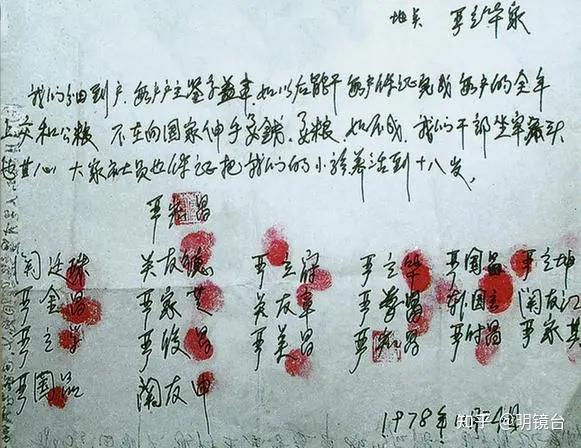 地点 严立华家
我们分田到户,每户户主签字盖章,如以后能干,每户保证完成每户的全年
上交和公粮 不在向国家伸手要钱、要粮,如不成,我们干部坐牢杀头
也甘心 大家社员也保证把我们的小孩养活到十八岁,
严宏昌
关廷珠 关友德 严立符 严立华 严国昌 严立坤
严金昌 严家芝 关友章 严学昌 韩国云 关友江
严立学 严俊昌 严美昌 严宏昌 严付昌 严家其
严国品 关友申
1978年
知乎 @明镜台